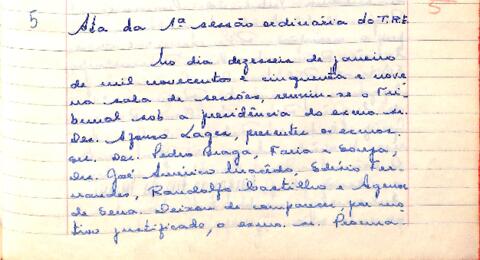 5 Ata da 1ª sessão ordinária do T.R.E. 5
No dia dezesseis de janeiro
de mil novecentos e cinquenta e nove
na sala de sessões, reuniu-se o Tri-
bunal sob a presidência do exmo. sr.
Des. Afonso Lages, presentes os exmos.
srs. Des. Pedro Braga, Faria e Souza,
Drs. José Américo Macêdo, Edésio Fer-
nandes, Randolfo Castilho e Agenor
de Sena. Deixou de comparecer, por mo-
tivo justificado, o exmo. sr. Procura-